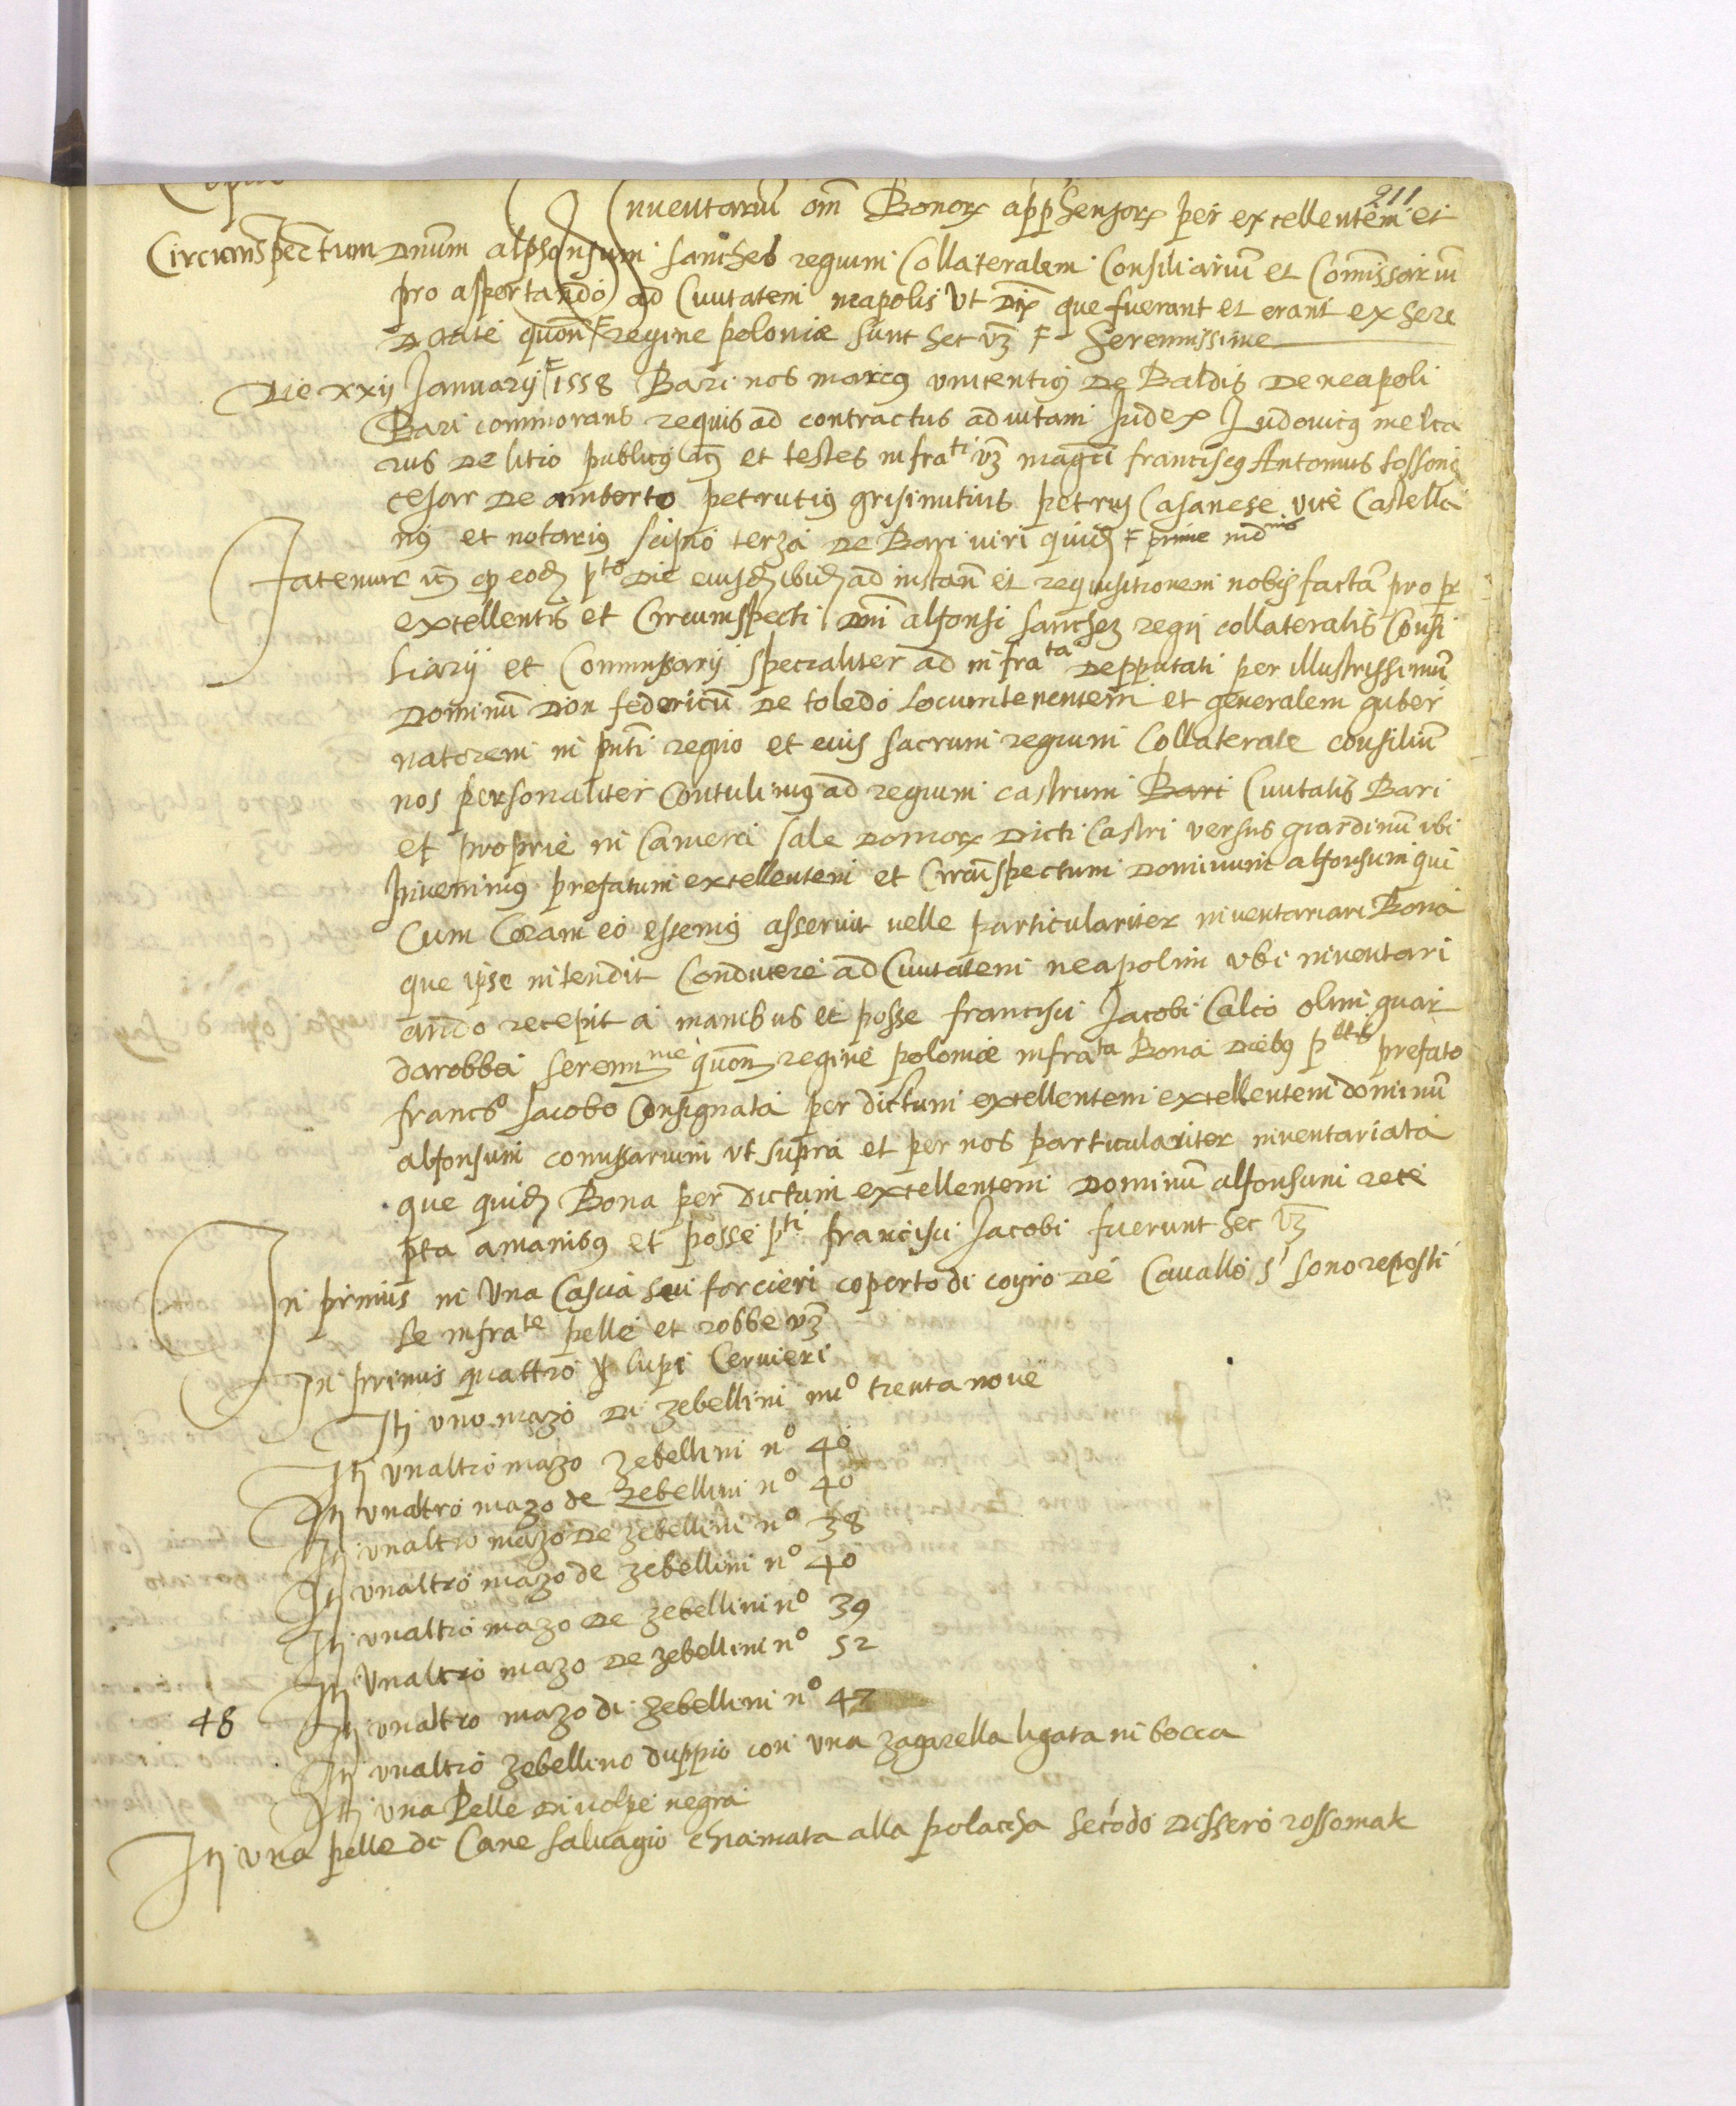 211
Inventariũ om̃ Bonoꝝ appꝛhensoꝝ per excellentem et
Circumspectum Dnũm alphonsum sanches regium Collateralem Consiliariũ et Comissariũ
pro asportando ad Civitatem neapolis ut Dix̃ que fuerant et erant ex here
Ditate quon̄ F regine polonie sunt hec vꝫ F Serenissime
Die xxij Januarij F 1558 Bari nos marcus vincentius De Baldis De neapoli
Bari commorans regius ad contractus ad vitam Judex Ludovicus melca
rus De litio publicus et testes infra^ti vꝫ magci franciscus Antonius fossoni
cesar De amberto petrutius grisinutius petrus Casanese vice Castella
nus et notarius scipio terza De Bari viri quidẽ F prime ind^nis
fatemur qꝫ eodẽ p^to Die eiusdẽ ibidẽ ad instanẽ et requisitionem nobis factã pro pte
excellentis et Circumspecti Dni alfonsi sanchez regij collateralis Consi
liarij et Commissarij specialiter ad infra^ta Depputati per illustrissimũ
Dominũ Don federicũ De toledo Locumtenentem et generalem guber
natorem in pnti regno et eius sacrum regium Collaterale consiliũ
nos personaliter Contulimus ad regium castrum Bari Civitatis Bari
et proprie in Camera sale Domoꝝ Dicti Castri versus giardinũ ubi
Invenimus prefatum excellentem et Circũspectum Dominum alfonsum qui
Cum Coram eo essemus asseruit velle particulariter inventariari Bona
que ipse intendit Conducere ad Civitatem neapolim ubi inventari
ando recepit a manibus et posse francisci Jacobi Calco olim guar
darobba seren^me quon̄ regine polonie infra^ta Bona Diebus p^ttis prefato
franc^o Jacobo Consignata per dictum excellentem excellentem dominũ
alfonsum comissarium ut supra et per nos particulariter inventariata
que quidẽ Bona per dictum excellentem Dominũ alfonsum rece
pta a manibus et posse p^ti francisci Jacobi fuerunt hec vꝫ
In primis in Una Cascia seu forcieri coperto di coyro De Cavallo sono reposti
le infra^te pelle et robbe vꝫ
In primis quattro lupi Cervieri
Itj uno mazo Di zebellini nu^o trenta nove
Itj unaltro mazo zebellini n^o 40
Itj unaltro mazo de zebellini n^o 40
Itj unaltro mazo De zebellini n^o 38
Itj unaltro mazo de zebellini n^o 40
Itj unaltro mazo De zebellini n^o 39
Itj Unaltro mazo De zebellini n^o 52
48 Itj unaltro mazo di zebellini n^o 47
Itj unaltro zebellino duppio con una zagarella ligata in bocca
Itj una Pelle Di volpe negra
Itj una pelle di Cane salvagio chiamata alla polacha secõdo Dissero rossomak